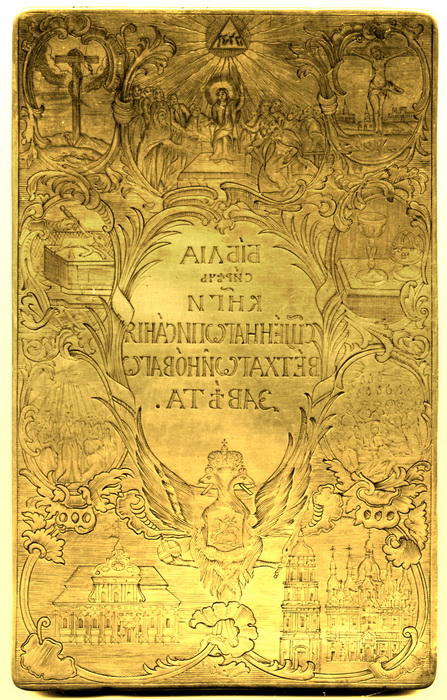 БІБЛІА
СИРѢЧЬ
КНИГИ
СЩ҃ЕННАГѠ ПИСАНІЯ
ВЕТХАГѠ И НОВАГѠ
ЗАВѢТА.